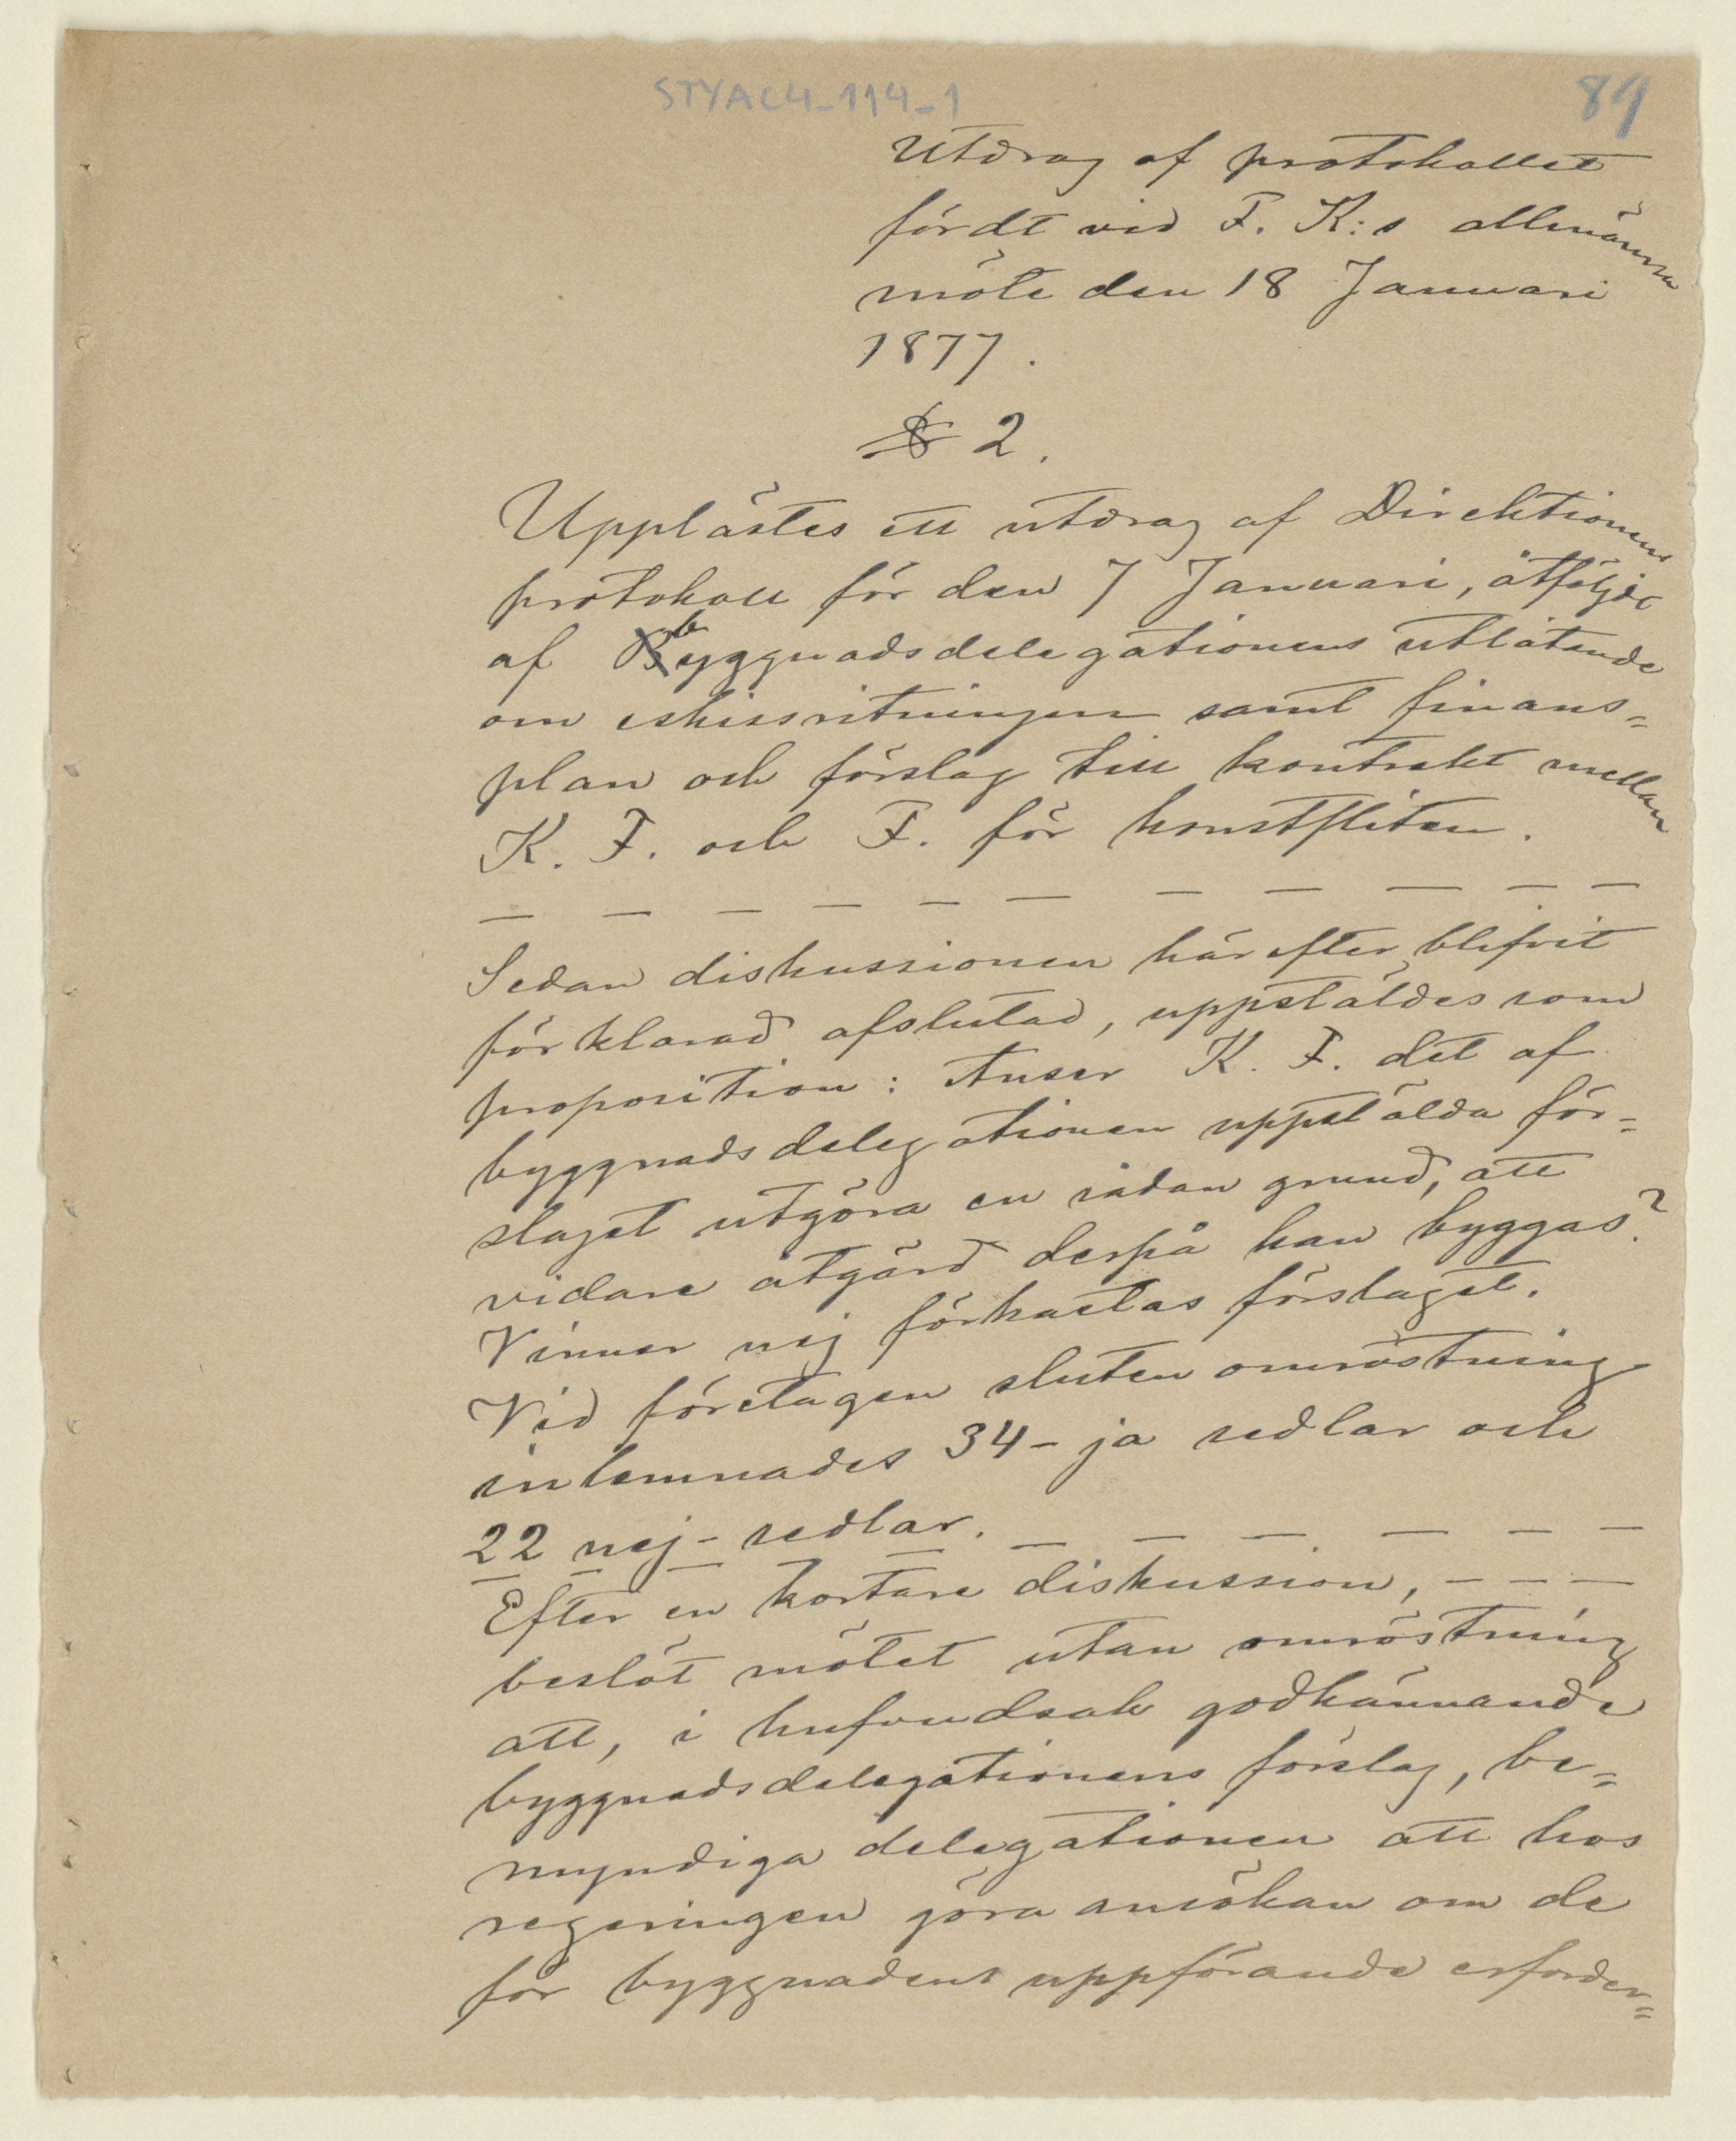 STYAC4_114_1
89
Utdrag af protokollet
fördt vid F. K:s allmänna
möte den 18 Januari
1877.
§ 2.
Upplästes ett utdrag af Direktionens
protokoll för den 7 Januari, åtföljdt
af byggnadsdelegationens utlåtande
om eskissritningen samt finans=
plan och förslag till kontrakt mellan
K. F. och F. för konstfliten.
— — — — — — — — — — —
Sedan diskussionen härefter blifvit
förklarad afslutad, uppstäldes som
proposition: Anser K. F. det af
byggnadsdelegationen uppstälda för=
slaget utgöra en sådan grund, att
vidare åtgärd derpå kan byggas?
Vinner nej förkastas förslaget.
Vid företagen sluten omröstning
inlemnades 34 - ja sedlar och
22 nej - sedlar. — — — — — —
— — — —
Efter en kortare diskussion, — — —
beslöt mötet utan omröstning
att, i hufvudsak godkännande
byggnadsdelegationens förslag, be=
myndiga delegationen att hos
regeringen göra ansökan om de
för byggnadens uppförande erforder=